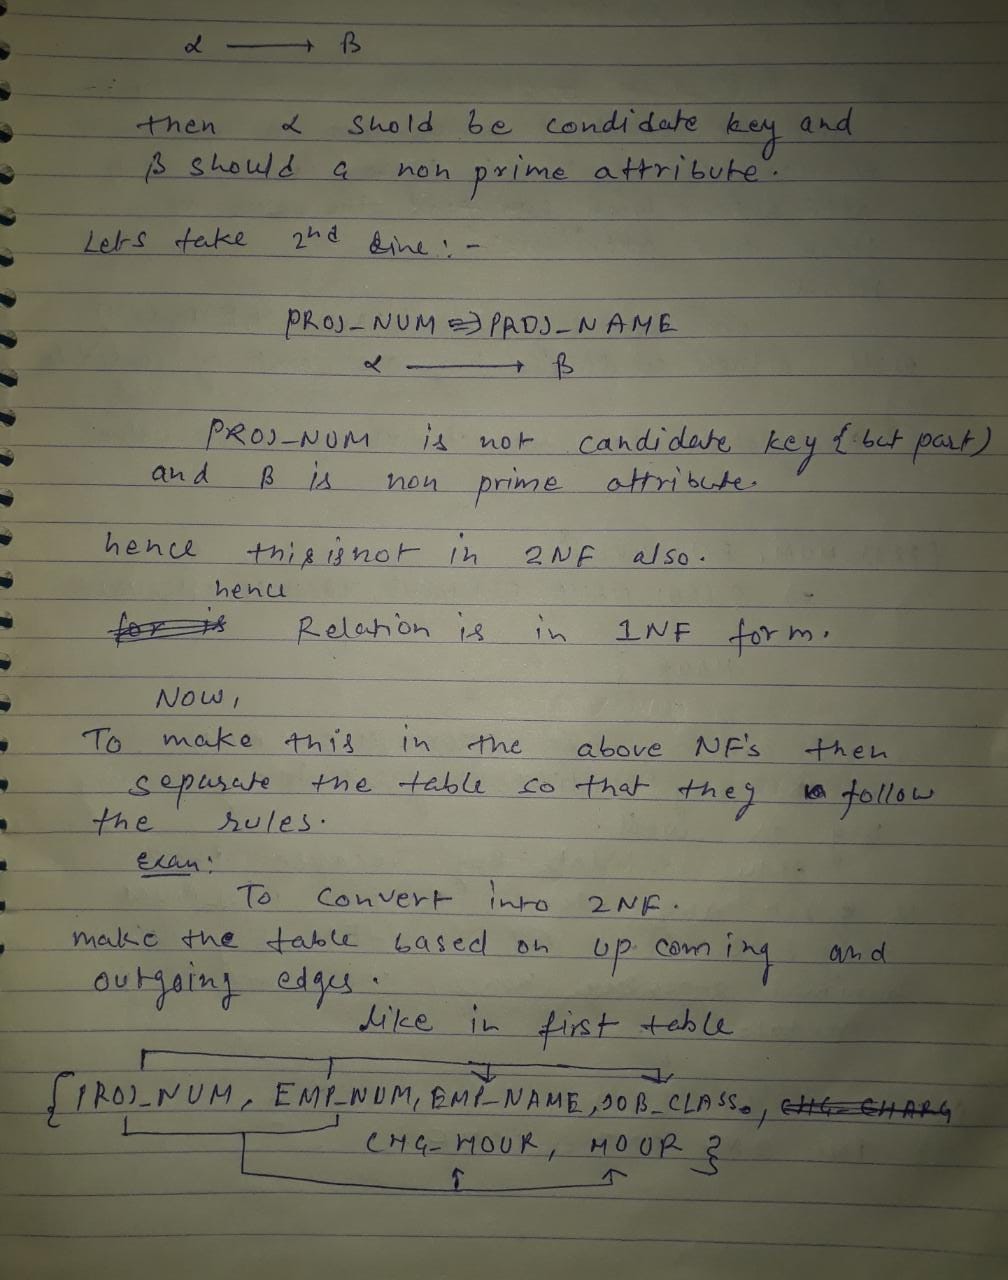 α → β
then α shold be condidate key and
β should a non prime attribute.
Lets take 2nd line :-
PROJ_NUM ⇒ PROJ_NAME
α → β
PROJ_NUM is not candidate key { but part)
and β is non prime attribute.
hence this is not in 2NF also.
hence
for is Relation is in 1NF form.
NOW,
To make this in the above NF's then
separate the table so that they follow
the rules.
Exam:
To convert into 2NF.
make the table based on up coming and
outgoing edges.
like in first table
{PROJ_NUM, EMP_NUM, EMP_NAME, JOB_CLASS, CHG_CHARG
CHG_HOUR, HOUR }